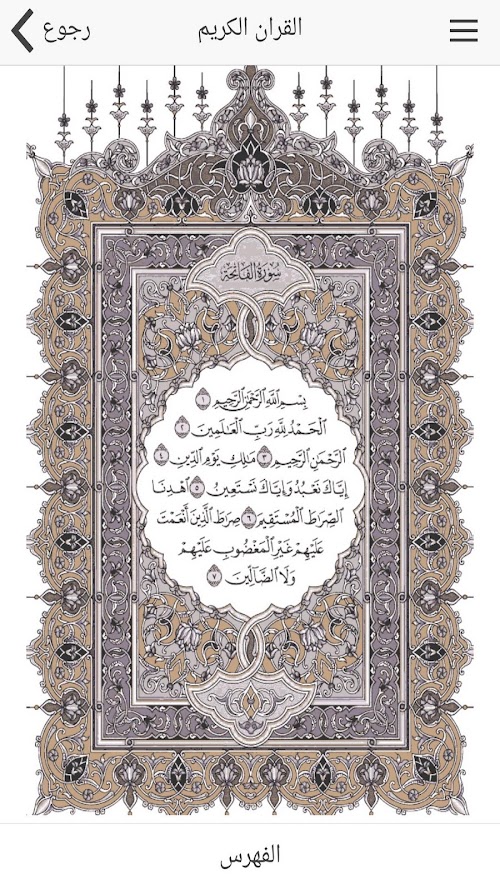 رجوع
القران الكريم
سُورَةُ الْفَاتِحَةِ
بِسْمِ ٱللَّهِ ٱلرَّحْمَٰنِ ٱلرَّحِيمِ ١
ٱلْحَمْدُ لِلَّهِ رَبِّ ٱلْعَٰلَمِينَ ٢
ٱلرَّحْمَٰنِ ٱلرَّحِيمِ ٣ مَٰلِكِ يَوْمِ ٱلدِّينِ ٤
إِيَّاكَ نَعْبُدُ وَإِيَّاكَ نَسْتَعِينُ ٥ ٱهْدِنَا
ٱلصِّرَٰطَ ٱلْمُسْتَقِيمَ ٦ صِرَٰطَ ٱلَّذِينَ أَنْعَمْتَ
عَلَيْهِمْ غَيْرِ ٱلْمَغْضُوبِ عَلَيْهِمْ
وَلَا ٱلضَّآلِّينَ ٧
الفهرس